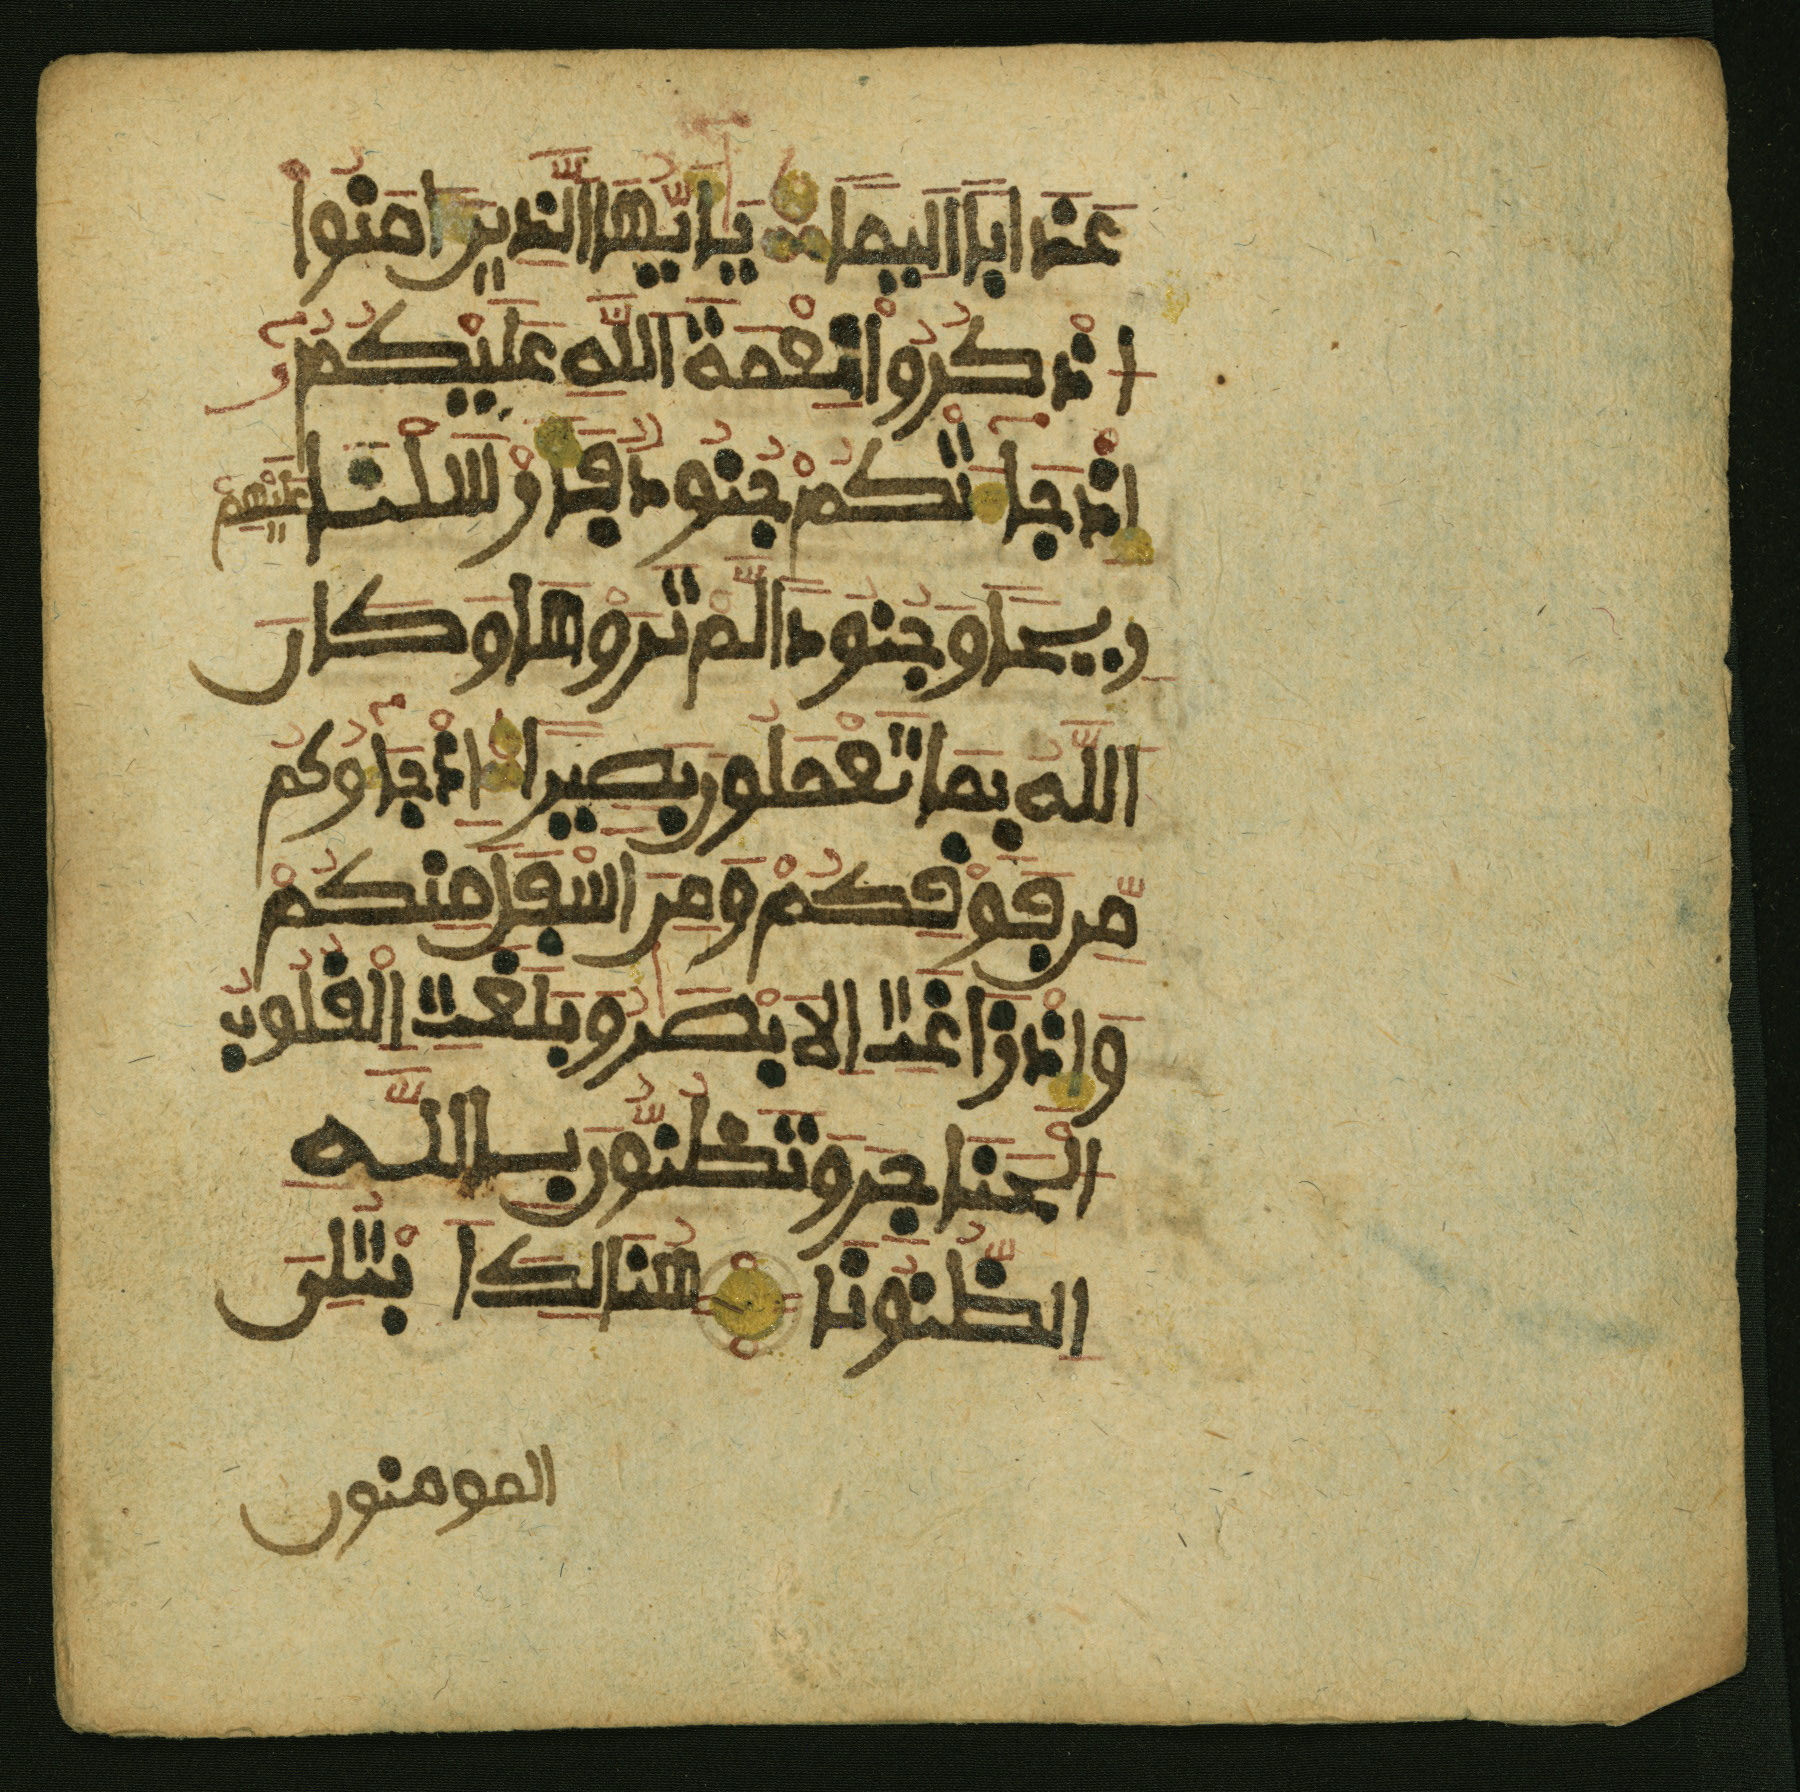 عَذَابًا اَلِيمًا يَٰأَيُّهَا اَلذِينَ ءَامَنُوا
اُذْكُرُوا نِعْمَةَ اَللَّهِ عَلَيْكُمُۥ
إِذْ جَآءَتْكُمْ جُنُودٌ فَأَرْسَلْنَا عَلَيْهِمْ
رِيحًا وَجُنُودًا لَّمْ تَرَوْهَا وَكَانَ
اَللَّهُ بِمَا تَعْمَلُونَ بَصِيرًا إِذْ جَآءُوكُم
مِّن فَوْقِكُمْ وَمِنَ اَسْفَلَ مِنكُمْ
وَإِذْ زَاغَتِ اِلَابْصَٰرُ وَبَلَغَتِ اِلْقُلُوبُ
اُلْحَنَاجِرَ وَتَظُنُّونَ بِاللَّهِ
اِلظُّنُونَا هُنَالِكَ اَبْتُلِيَ
المومنون